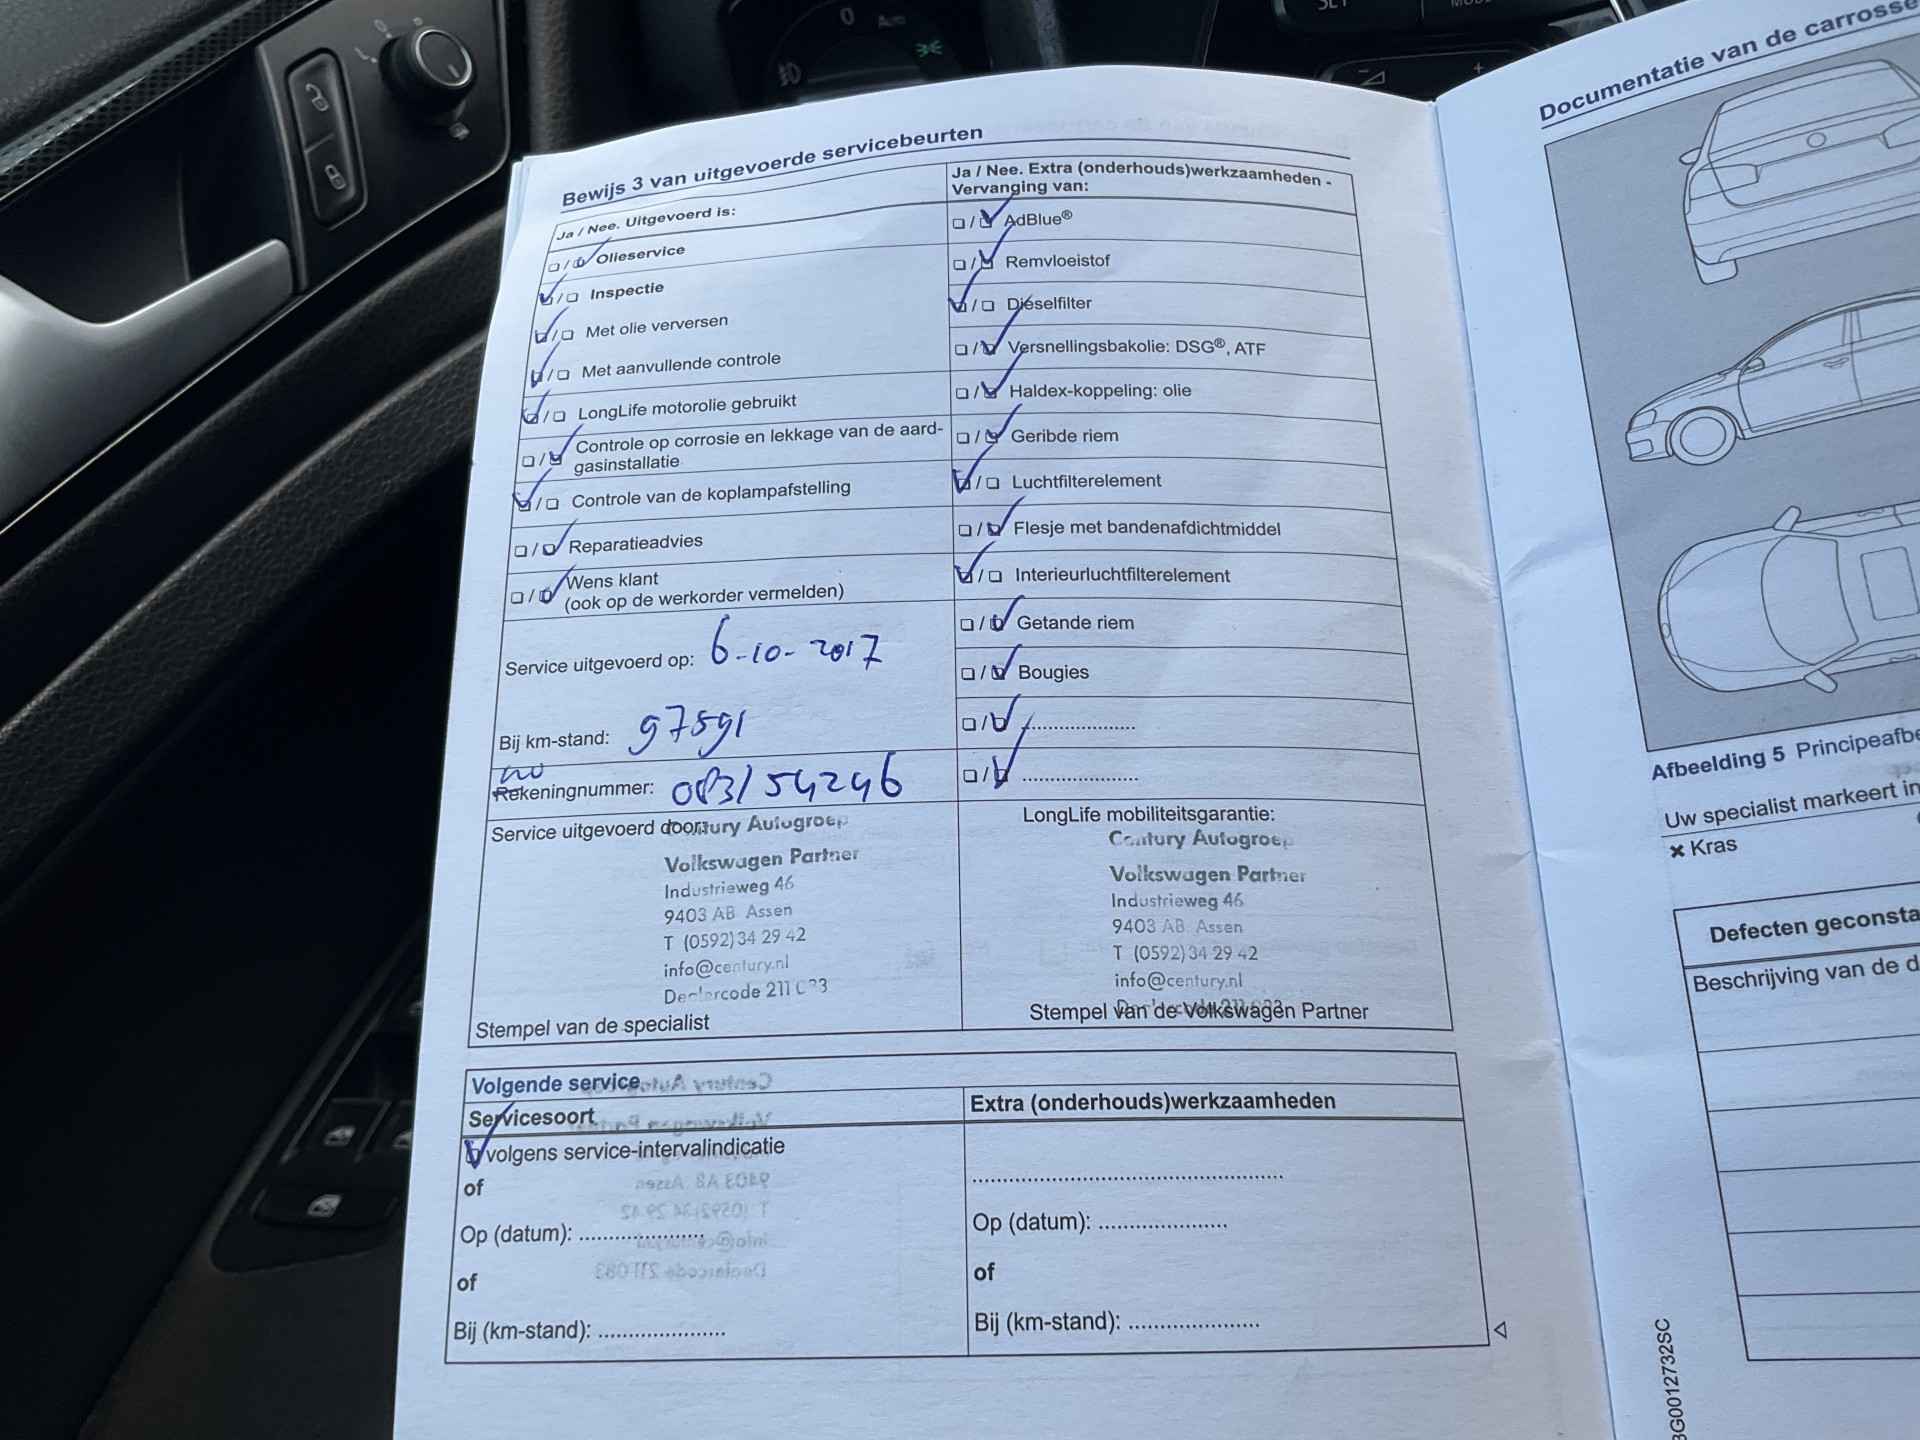 Bewijs 3 van uitgevoerde servicebeurten
Ja / Nee. Uitgevoerd is:
Olieservice
Inspectie
Met olie verversen
Met aanvullende controle
LongLife motorolie gebruikt
Controle op corrosie en lekkage van de aard-
gasinstallatie
Controle van de koplampafstelling
Reparatieadvies
Wens klant
(ook op de werkorder vermelden)
Service uitgevoerd op: 6-10-2017
Bij km-stand: 97591
wo
Rekeningnummer: 083/54246
Service uitgevoerd door:
Century Autogroep
Volkswagen Partner
Industrieweg 46
9403 AB Assen
T (0592) 34 29 42
info@century.nl
Dealercode 211 083
Stempel van de specialist
Ja / Nee. Extra (onderhouds)werkzaamheden -
Vervanging van:
AdBlue®
Remvloeistof
Dieselfilter
Versnellingsbakolie: DSG®, ATF
Haldex-koppeling: olie
Geribde riem
Luchtfilterelement
Flesje met bandenafdichtmiddel
Interieurluchtfilterelement
Getande riem
Bougies
LongLife mobiliteitsgarantie:
Century Autogroep
Volkswagen Partner
Industrieweg 46
9403 AB Assen
T (0592) 34 29 42
info@century.nl
Stempel van de Volkswagen Partner
Volgende service
Servicesoort
volgens service-intervalindicatie
of
Op (datum): ......................
of
Bij (km-stand): ......................
Extra (onderhouds)werkzaamheden
Op (datum): ......................
of
Bij (km-stand): ......................
Documentatie van de
Afbeelding 5
Uw specialist markeert in
× Kras
Defecten
Beschrijving van de